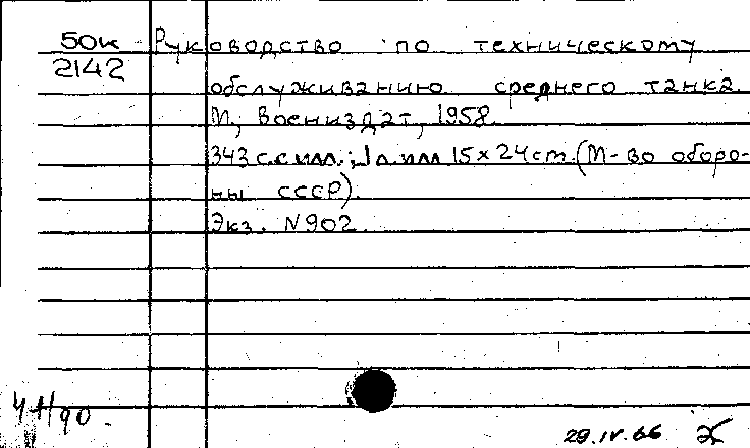 50к Руководство по техническому
2142
обслуживанию среднего танка.
М., Воениздат, 1958.
343 с.с илл.; 1 л. илл 15×24cm. (М-во оборо-
ны СССР).
Экз. N902.
29.IV.66